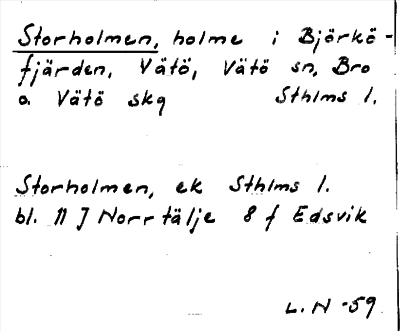 Storholmen, holme i Björkö-
fjärden, Vätö, Vätö sn, Bro
o. Vätö skg Sthlms l.
Storholmen, ek Sthlms l.
bl. 11 J Norrtälje 8 f Edsvik
L. N -59